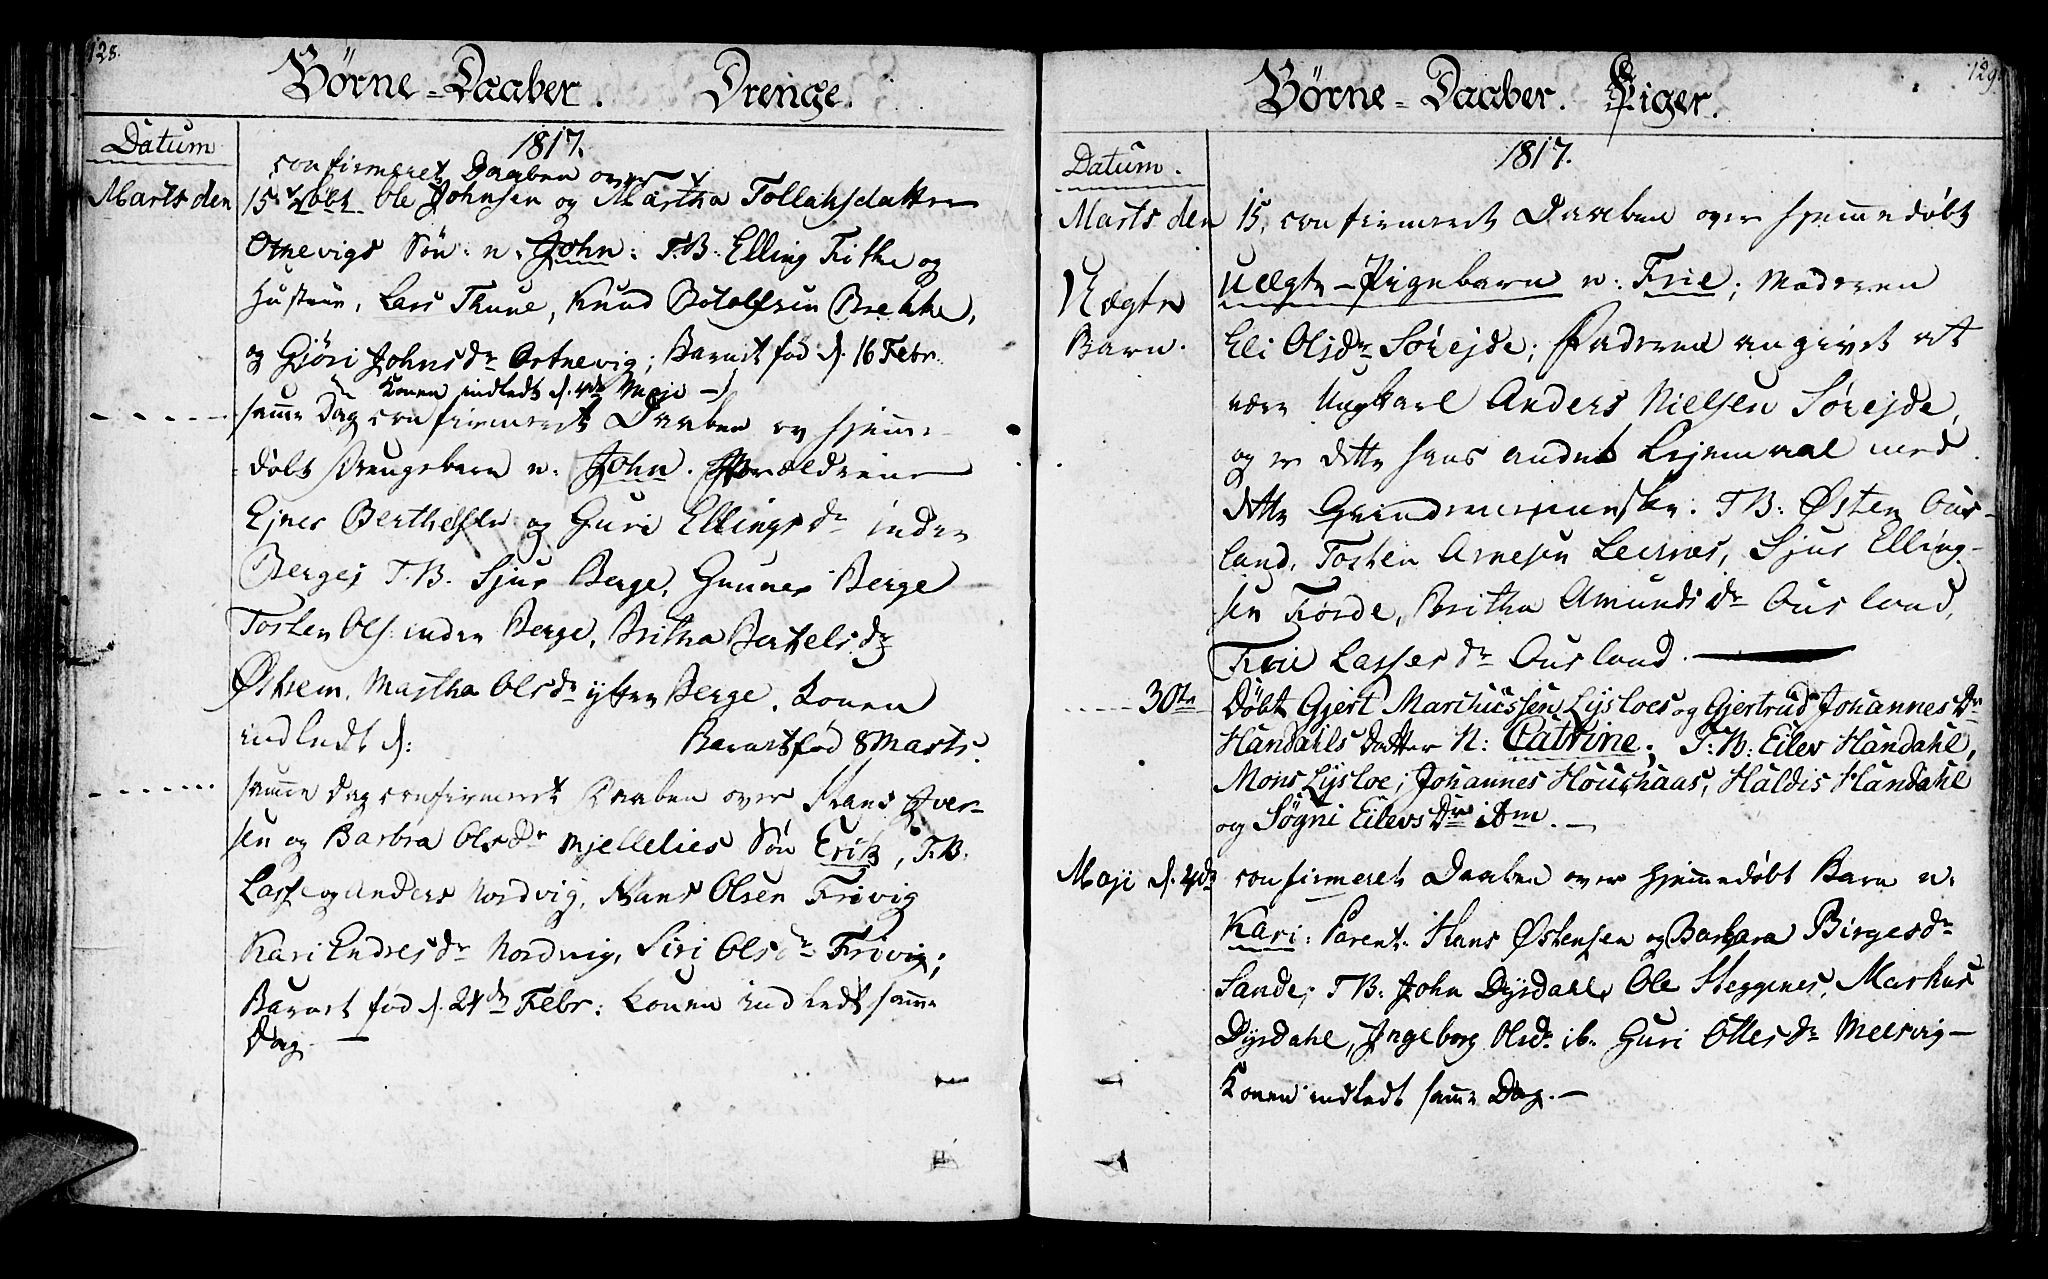 128.
Børne-Daaber. Drenge.
Datum
1817.
confirmeret Daaben over
Marts den 15 døbt Ole Johnsen og Martha Tollaksdatter
Otnevigs Søn: n. John: T.B. Elling Fithe og
Hustrue, Lars Thune, Knud Botolfsen Brekke,
og Gjøri Johnsdr Ortnevig; Barnet fød d. 16 Febr.
Konen indledt d. 4de Maje
samme Dag confirmeret Daaben og hjemme-
døbt Drengebarn n. John. Forældrene
Ejner Berthelsen og Guri Ellingsdr indre
Berges T.B. Sjur Berge, Gunner Berge
Tosten Ols. indre Berge, Britha Bertelsdr
Østrem, Martha Olsdr yttre Berge. Konen
indledt d: Barnet fød 8 Marts.
samme Dag confirmeret Daaben over Hans Iver-
sen og Barbra Olsdr Mjellelies Søn Erik, T.B.
Lasse og Anders Nordvig, Hans Olsen Frivig
Kari Endresdr Nordvig, Siri Olsdr Frivig;
Barnet fød d. 24de Febr: Konen indledt samme
Dag. —
129
Børne-Daaber. Piger.
Datum.
1817.
Marts den 15, confirmeret Daaben over hjemmedøbt
Uægte Barn.
uægte Pigebarn n: Frie; Moderen
Eli Olsdr Sørejde; Faderen angivet at
være Ungkarl Anders Nielsen Sørejde,
og er dette hans andet Lejermaal med
dette Qvindemenneske. T.B: Østen Ous-
land, Tosten Arnesen Leernes, Sjur Elling-
sen Førde, Britha Amundsdr Ousland,
Frie Lassesdr Ousland.
30te Døbt Gjert Marchussen Lysloes og Gjertrud Johannesdr
Handahls Datter N: Catrine; T:B: Eilev Handahl,
Mons Lysloe; Johannes Houghaas, Haldis Handahl
og Søgni Eilevsdr i Am. —
Maji d. 4de confirmeret Daaben over hjemmedøbt Barn n.
Kari: Parent. Hans Østensen og Barbara Birgesdr
Sande; T.B: John Dysdahl, Ole Steggenes, Markus
Dysdahl, Ingeborg Olsdr ib. Guri Ottesdr Meesvig —
Konen indledt samme Dag. —